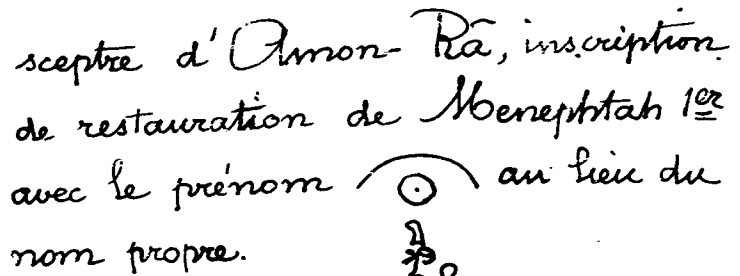 sceptre d'Amon-Râ, inscription
de restauration de Menephtah 1er
avec le prénom au lieu du
nom propre.